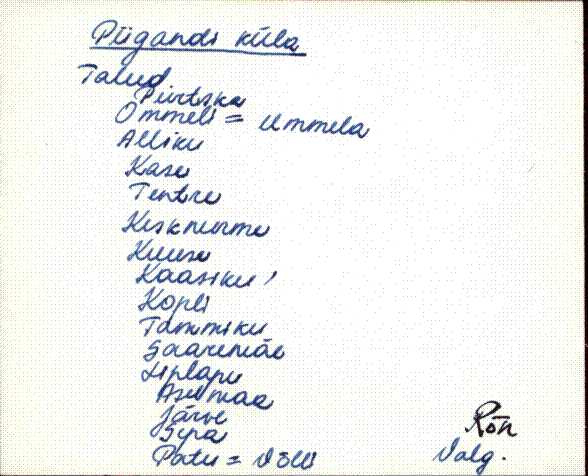 Piigandi küla
Talud
Piirtska
Ommeli = Ummela
Alliku
Kase
Tentre
Kesknurme
Kuuse
Kaasiku
Kopli
Tammiku
Saaremäe
Liplapu
Asumaa
Järve
Sepa
Patu = Võlli
Rõn
Valg.